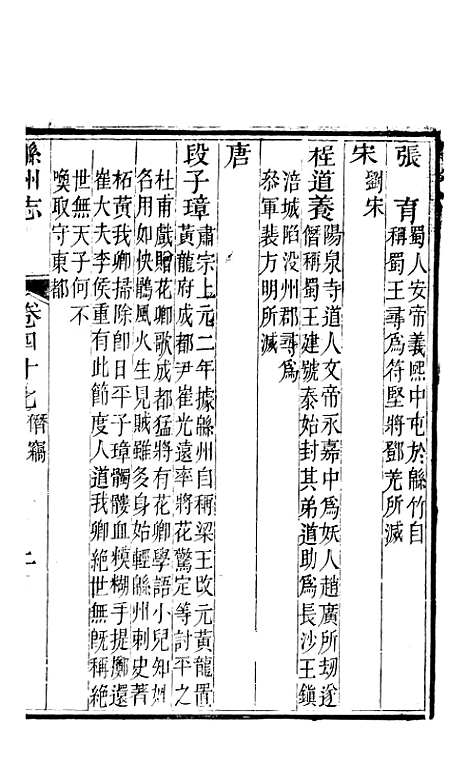 張育
蜀人安帝義熙中屯於緜竹自
稱蜀王尋爲符堅將鄧羌所滅
宋
劉宋
程道養
陽泉寺道人文帝永嘉中爲妖人趙廣所刧遂
僭稱蜀王建號泰始封其弟道助爲長沙王鎭
涪城陷没州郡尋爲
叅軍裴方明所滅
唐
段子璋
肅宗上元二年據緜州自稱梁王改元黃龍置
黃龍府成都尹崔光遠率將花驚定等討平之
杜甫戲贈花卿歌成都猛將有花卿學語小兒知姓
名用如快鶻風火生見賊雖多身始輕緜州刺史著
柘黃我卿掃除卽日平子璋髑髏血模糊手提擲還
崔大夫李侯重有此節度人道我卿絶世無旣稱絶
世無天子何不
喚取守東都
緜州志
卷四十七 僭竊
二